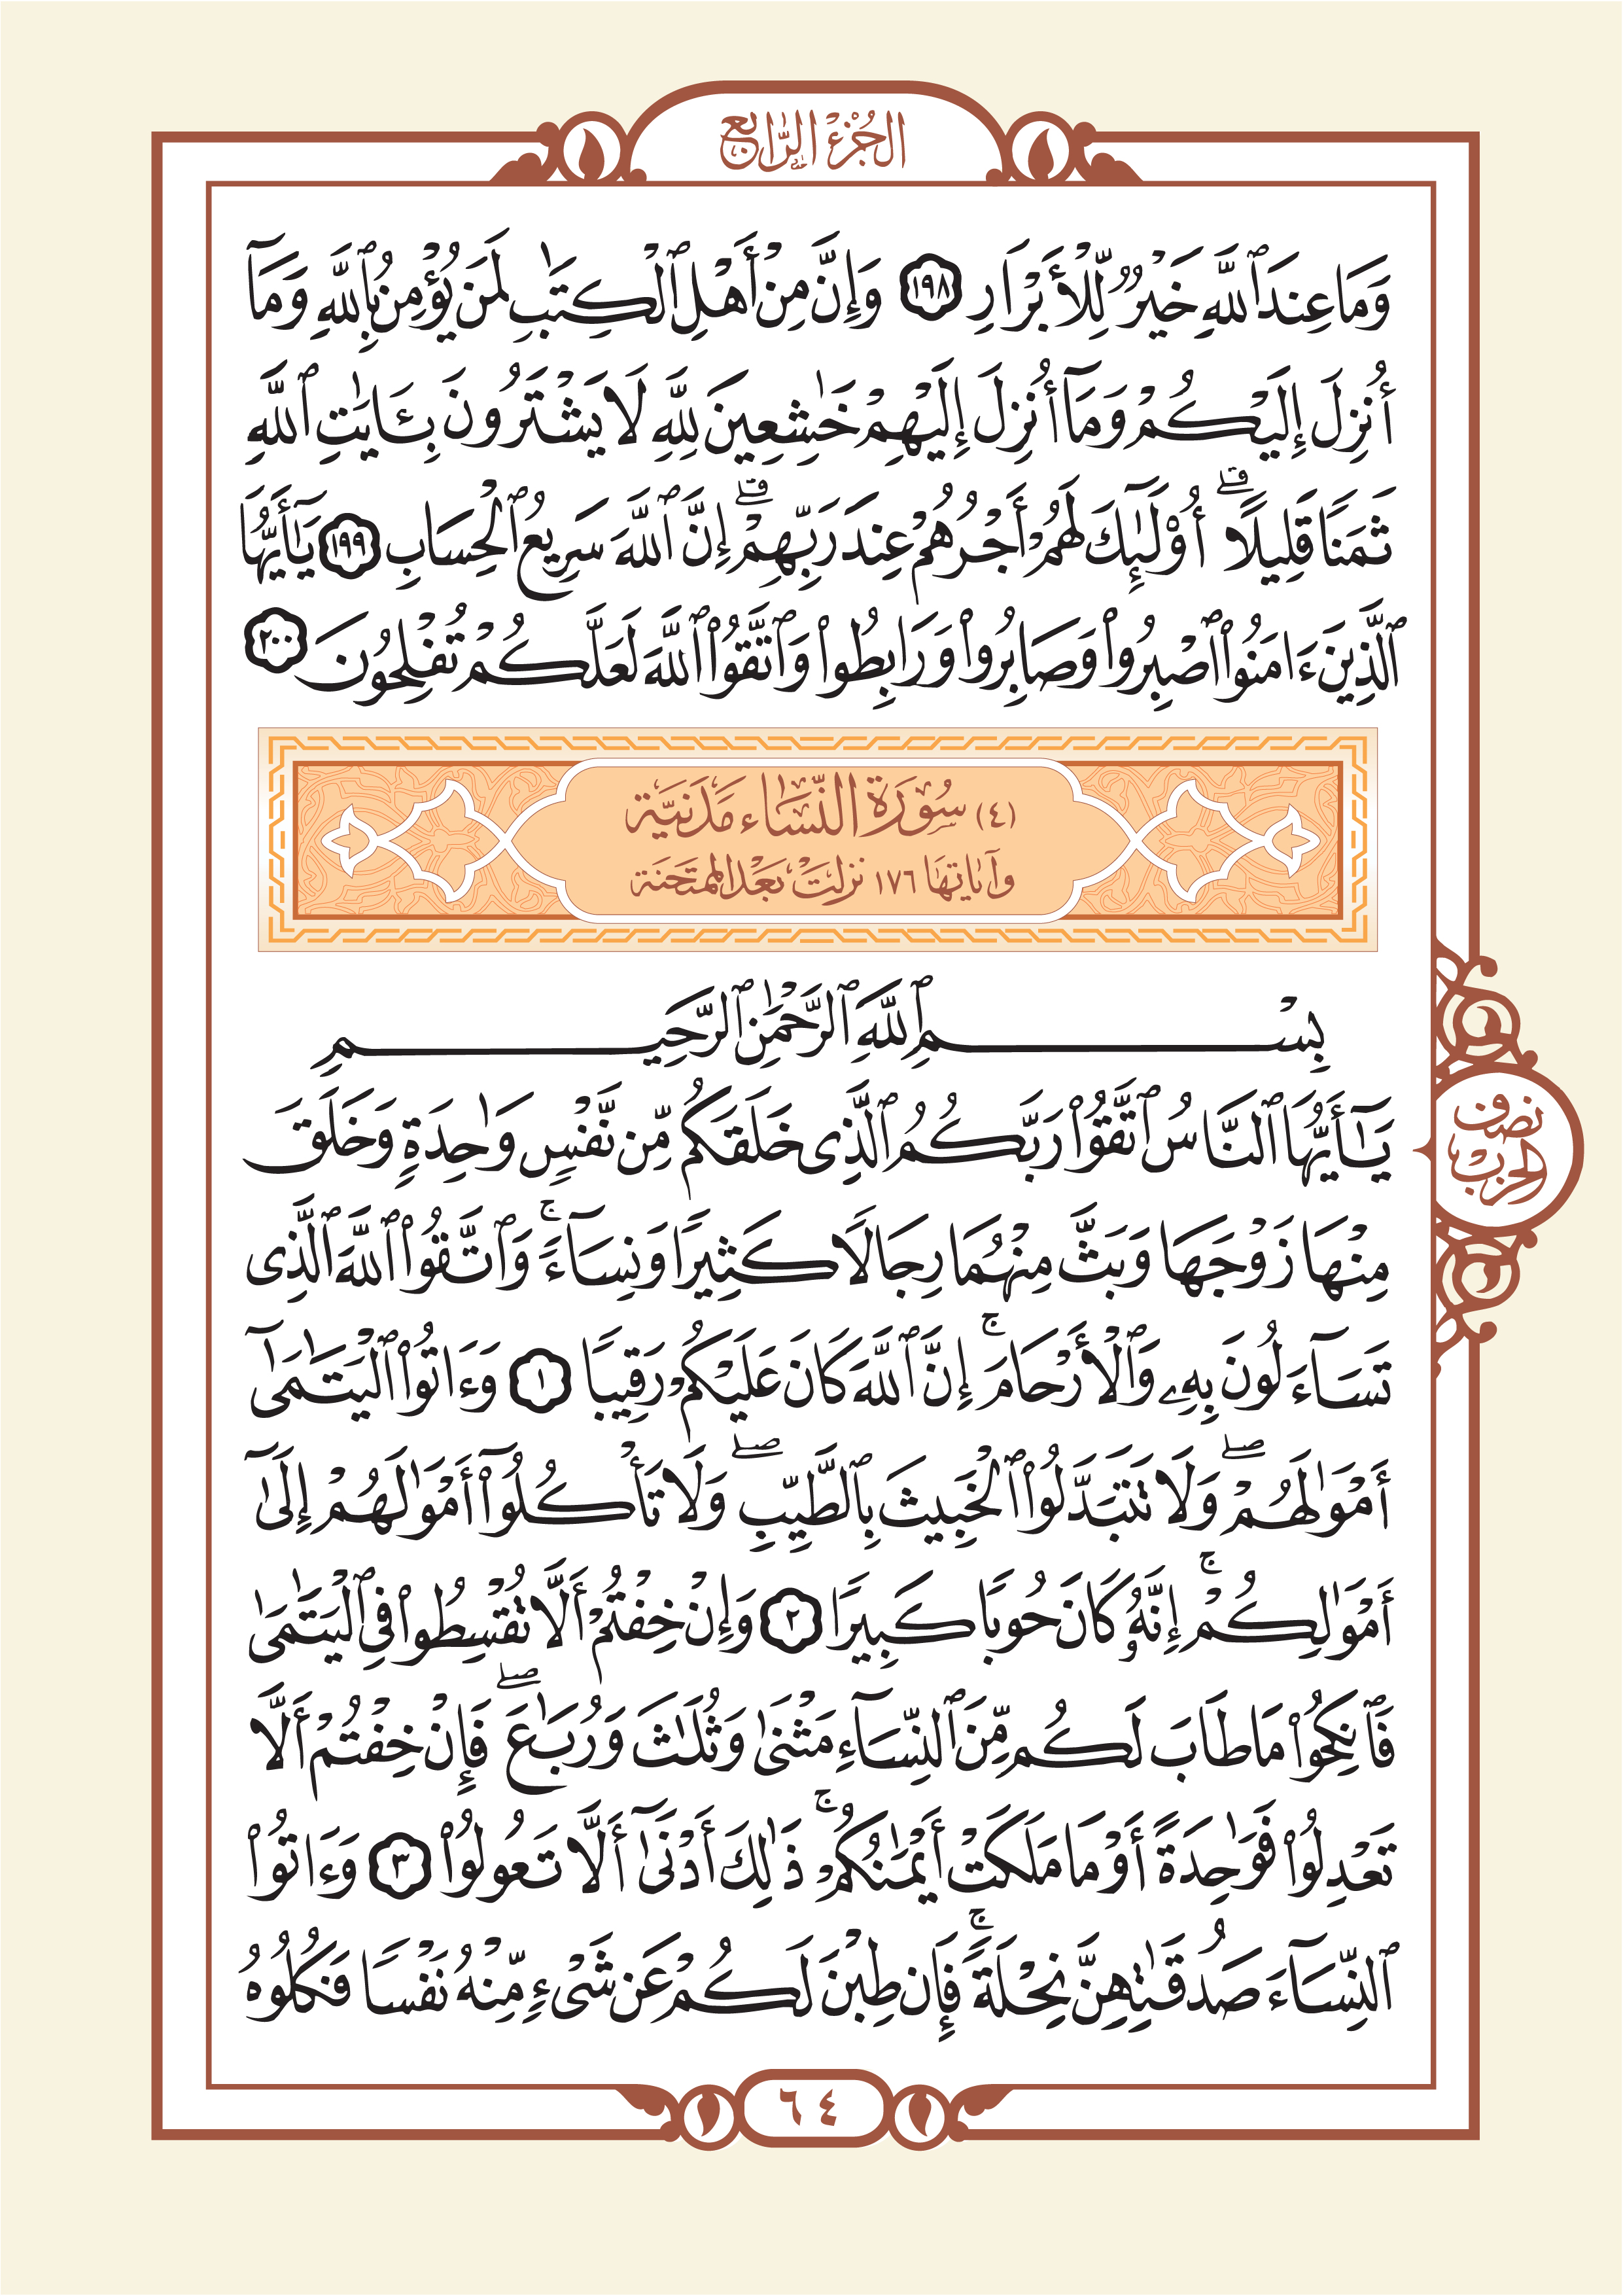 الجُزْءُ الرَّابِعُ
وَمَا عِندَ ٱللَّهِ خَيْرٌ لِّلْأَبْرَارِ ١٩٨ وَإِنَّ مِنْ أَهْلِ ٱلْكِتَٰبِ لَمَن يُؤْمِنُ بِٱللَّهِ وَمَآ
أُنزِلَ إِلَيْكُمْ وَمَآ أُنزِلَ إِلَيْهِمْ خَٰشِعِينَ لِلَّهِ لَا يَشْتَرُونَ بِـَٔايَٰتِ ٱللَّهِ
ثَمَنًا قَلِيلًا ۗ أُو۟لَٰٓئِكَ لَهُمْ أَجْرُهُمْ عِندَ رَبِّهِمْ ۗ إِنَّ ٱللَّهَ سَرِيعُ ٱلْحِسَابِ ١٩٩ يَٰٓأَيُّهَا
ٱلَّذِينَ ءَامَنُوا۟ ٱصْبِرُوا۟ وَصَابِرُوا۟ وَرَابِطُوا۟ وَٱتَّقُوا۟ ٱللَّهَ لَعَلَّكُمْ تُفْلِحُونَ ٢٠٠
(٤) سُورَةُ النِّسَاءِ مَدَنِيَّة
وَآيَاتُهَا ١٧٦ نَزَلَتْ بَعْدَ المُمْتَحَنَة
بِسْمِ ٱللَّهِ ٱلرَّحْمَٰنِ ٱلرَّحِيمِ
يَٰٓأَيُّهَا ٱلنَّاسُ ٱتَّقُوا۟ رَبَّكُمُ ٱلَّذِى خَلَقَكُم مِّن نَّفْسٍ وَٰحِدَةٍ وَخَلَقَ
نصف
الحزب
مِنْهَا زَوْجَهَا وَبَثَّ مِنْهُمَا رِجَالًا كَثِيرًا وَنِسَآءً ۚ وَٱتَّقُوا۟ ٱللَّهَ ٱلَّذِى
تَسَآءَلُونَ بِهِۦ وَٱلْأَرْحَامَ ۚ إِنَّ ٱللَّهَ كَانَ عَلَيْكُمْ رَقِيبًا ١ وَءَاتُوا۟ ٱلْيَتَٰمَىٰٓ
أَمْوَٰلَهُمْ ۖ وَلَا تَتَبَدَّلُوا۟ ٱلْخَبِيثَ بِٱلطَّيِّبِ ۖ وَلَا تَأْكُلُوٓا۟ أَمْوَٰلَهُمْ إِلَىٰٓ
أَمْوَٰلِكُمْ ۚ إِنَّهُۥ كَانَ حُوبًا كَبِيرًا ٢ وَإِنْ خِفْتُمْ أَلَّا تُقْسِطُوا۟ فِى ٱلْيَتَٰمَىٰ
فَٱنكِحُوا۟ مَا طَابَ لَكُم مِّنَ ٱلنِّسَآءِ مَثْنَىٰ وَثُلَٰثَ وَرُبَٰعَ ۖ فَإِنْ خِفْتُمْ أَلَّا
تَعْدِلُوا۟ فَوَٰحِدَةً أَوْ مَا مَلَكَتْ أَيْمَٰنُكُمْ ۚ ذَٰلِكَ أَدْنَىٰٓ أَلَّا تَعُولُوا۟ ٣ وَءَاتُوا۟
ٱلنِّسَآءَ صَدُقَٰتِهِنَّ نِحْلَةً ۚ فَإِن طِبْنَ لَكُمْ عَن شَىْءٍ مِّنْهُ نَفْسًا فَكُلُوهُ
٦٤